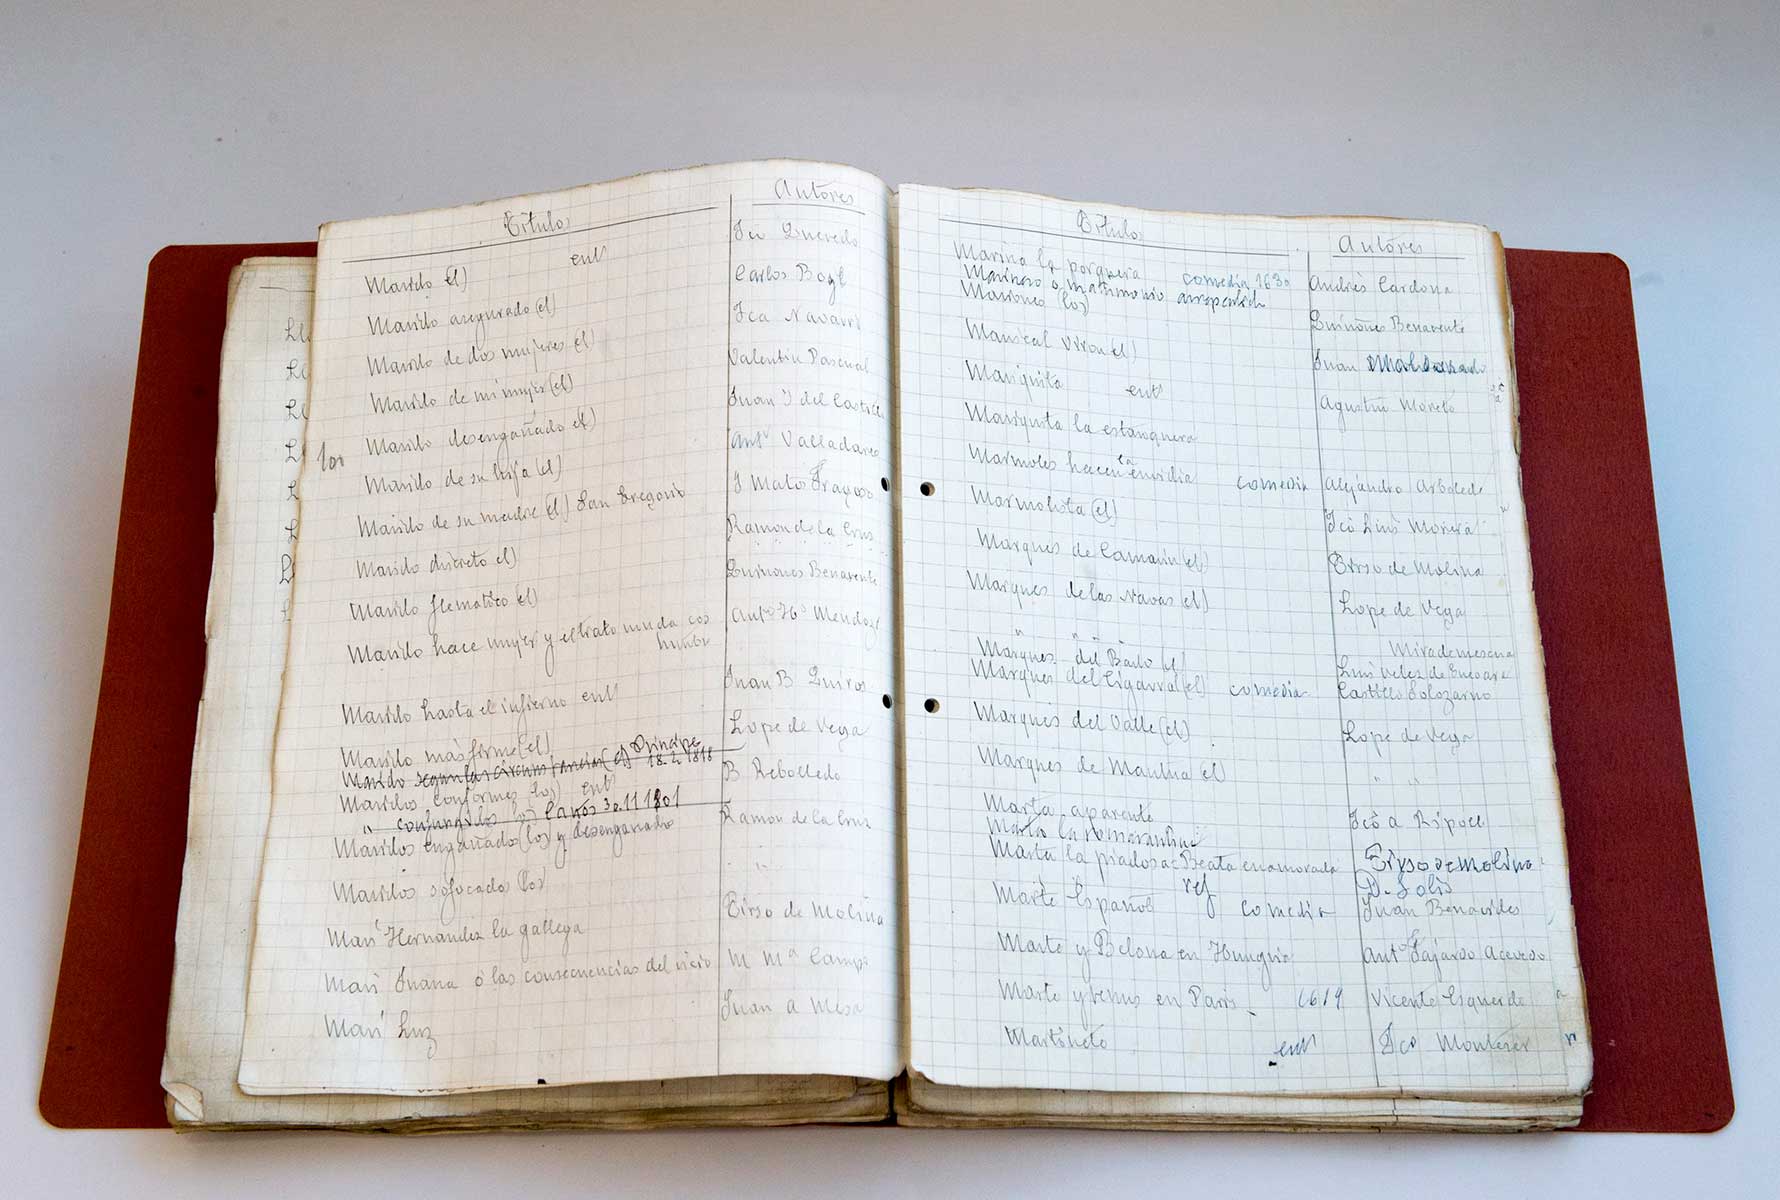 Título Autores
Marido (el) entº Fco Quevedo
Marido asegurado (el) Carlos Bogl
Marido de dos mujeres (el) Fca Navarro
Marido de mi mujer (el) Valentin Pascual
Marido desengañado el) Juan I del Castillo
100 Marido de su hija (el) Antº Valladares
Marido de su madre (el) San Gregorio J Matos Fragoso
Marido discreto el) Ramon de la Cruz
Marido flematico el) Quiñones Benavente
Marido hace mujer y el trato muda cos Antº Hº Mendoza
tumbr
Marido hasta el infierno entº Juan B Quiros
Marido mas firme (el) Lope de Vega
Marido segun las circunstancias (el) Principe 18.2.1816
Maridos conformes los) entº B Rebolledo
" conjungidos Caños 30.11.1801
Maridos engañados (los) y desengañado Ramon de la Cruz
Maridos sofocado los " "
Mari Hernandez la gallega Tirso de Molina
Mari Juana o las consecuencias del vicio M Mª Campo
Mari Luz Juan A Mesa
Título Autores
Marina la porquera comedia 1630 Andrés Cardona
Marinero o matrimonio arrepentido
Mariones (los) Quiñones Benavente
Mariscal Viron el) Juan Maldonado
Mariquita entº Agustin Moreto
Mariquita la estanquera
Marmoles hacen la envidia comedia Alejandro Arboleda
Marmolista (el) Fco Luis Morera
Marques de Camarin (el) Tirso de Molina
Marques de las Navas el) Lope de Vega
" " " " Mirademescua
Marques del Basto (el Luis Velez de Guevara
Marques del Cigarral (el) comedia Castillo Solozarno
Marqués del Valle (el) Lope de Vega
Marques de Mantua el) " "
Marta aparente Fco A Ripoll
Marta la romarantina
Marta la piadosa o Beata enamorada Tirso de Molina
ref D. Solis
Marte Español comedia Juan Benavides
Marte y Belona en Hungria Antº Fajardo Acevedo
Marte y Venus en Paris 1619 Vicente Esquerdo
Martinete entº Fco Monteser